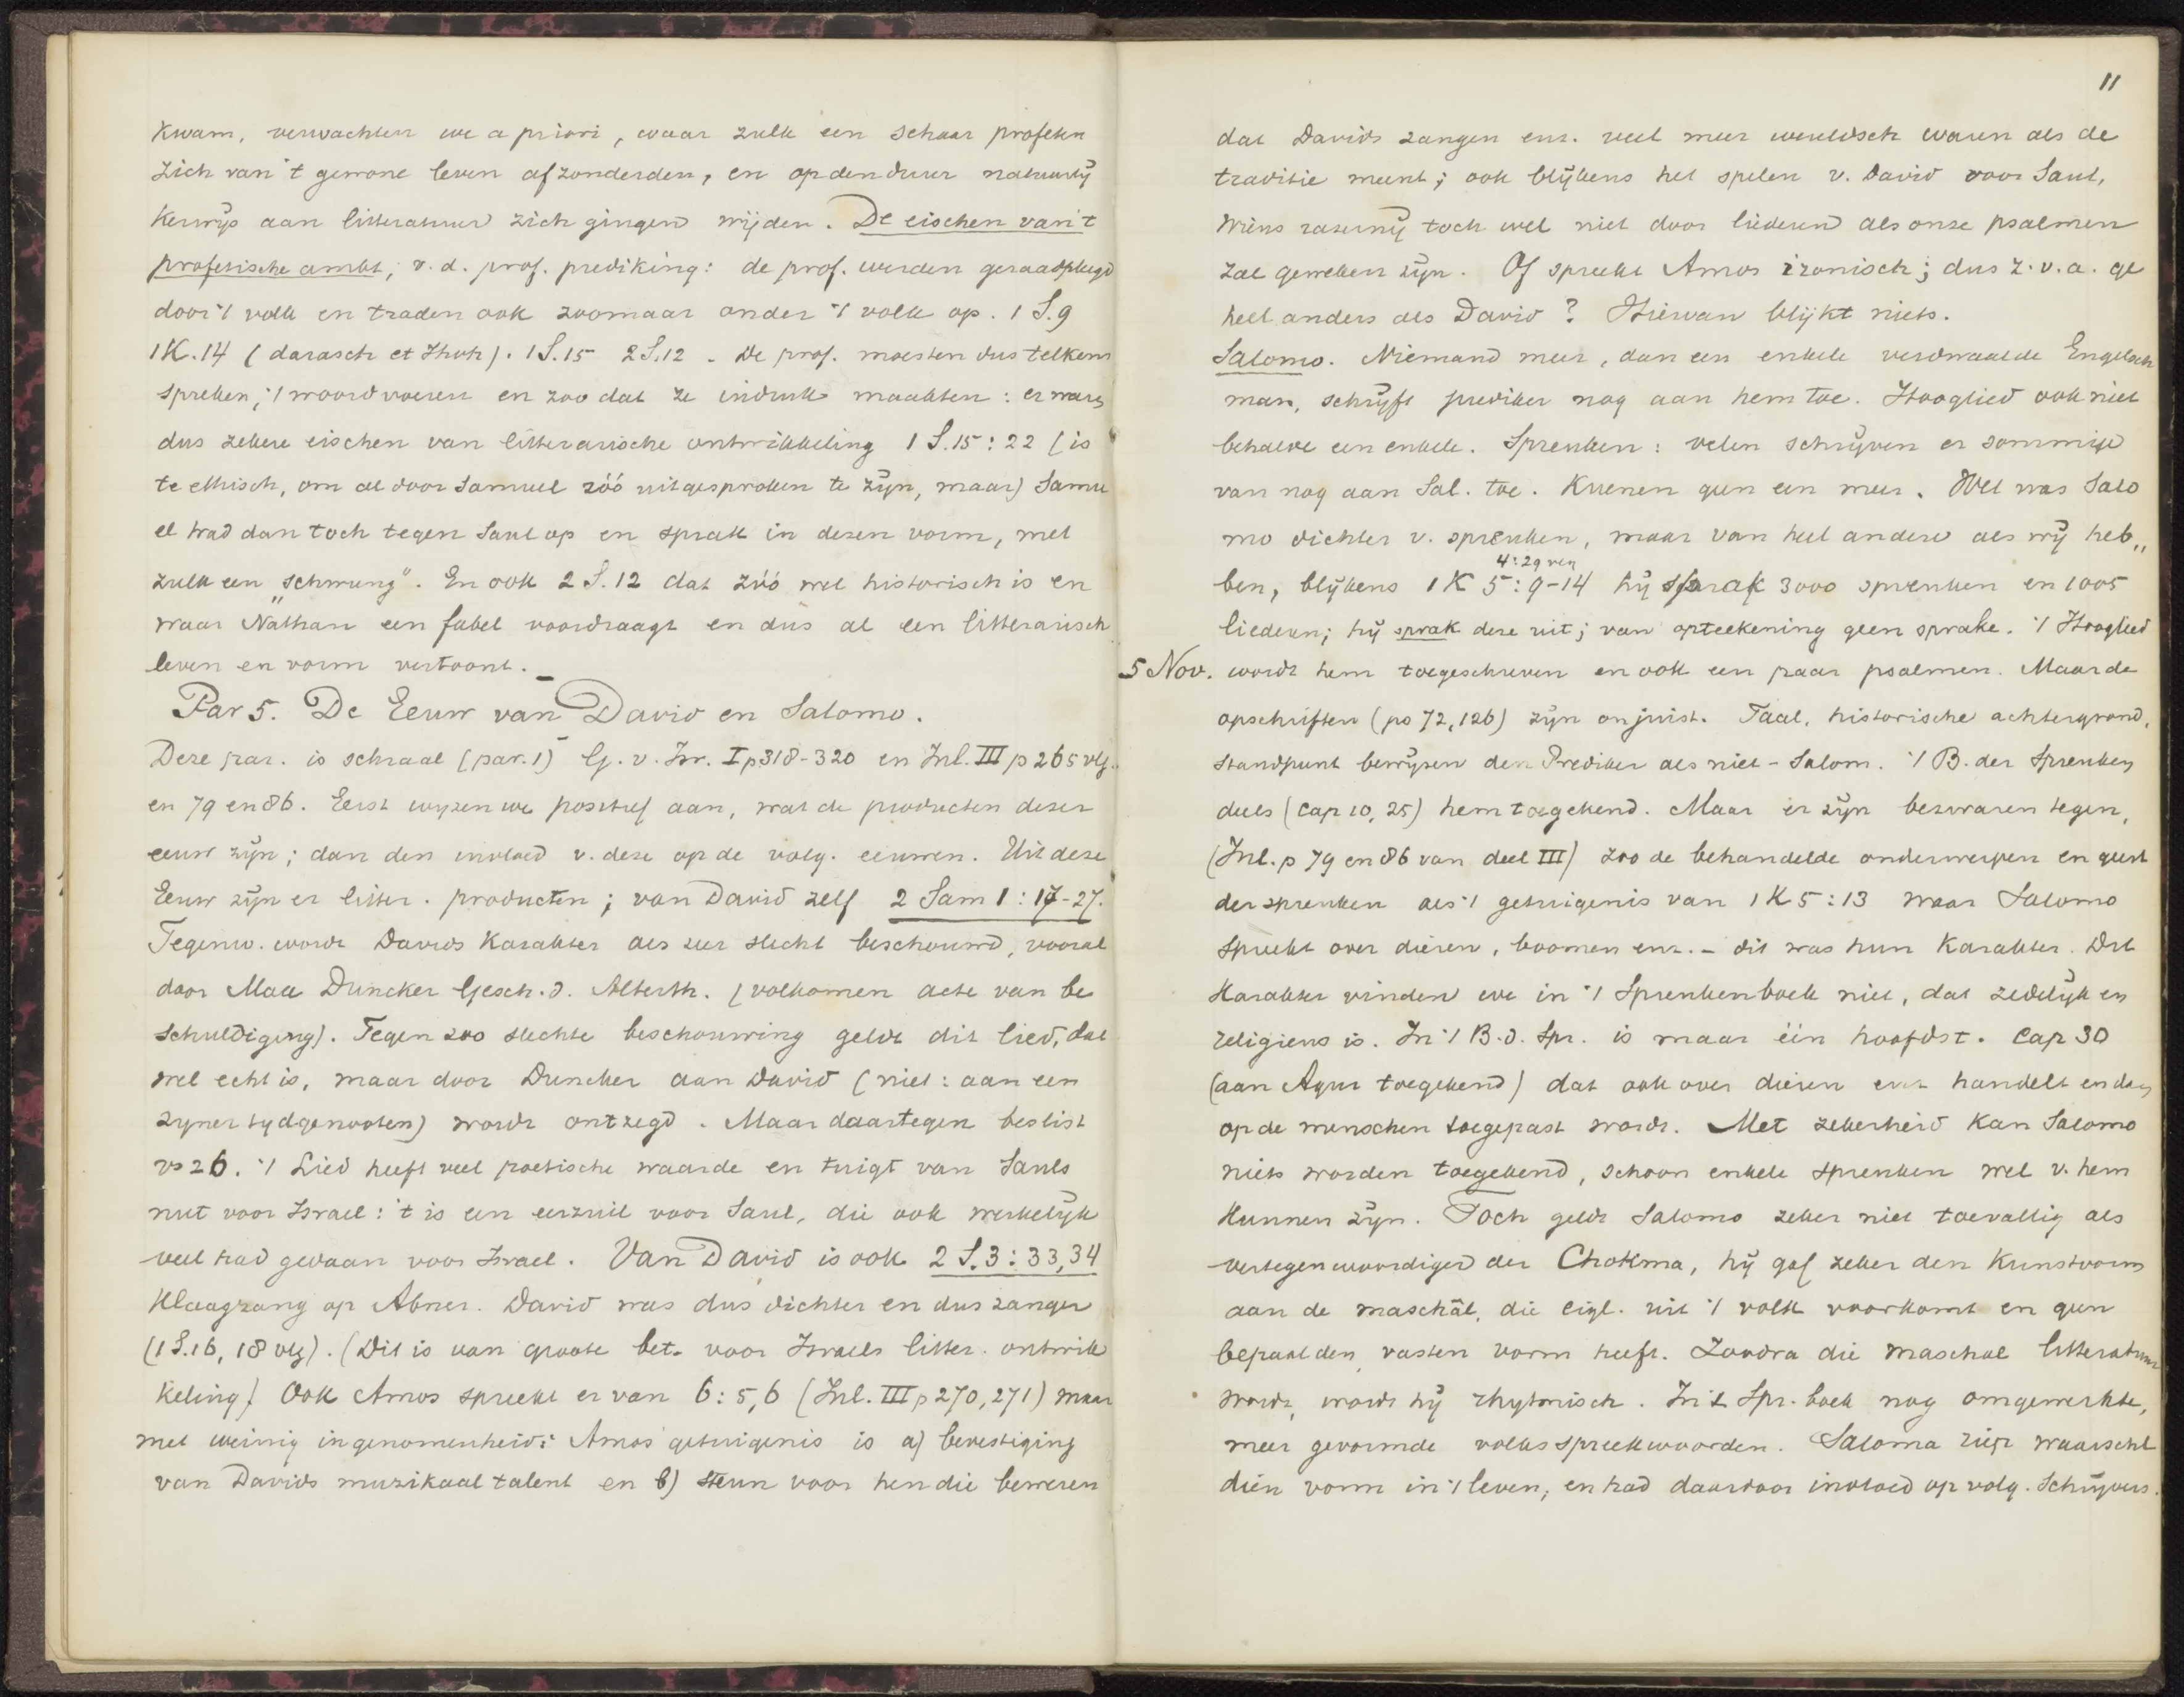 kwam, verwachten we a priori, waar zulk een schaar profeten
zich van 't gewone leven afzonderden, en op den duur natuurlij
kerwijs aan litteratuur zich gingen wijden. De eischen van 't
profetische ambt, v.d. prof. prediking: de prof. werden geraadpleegd
door 't volk en traden ook zoomaar onder 't volk op. 1 S.9
1K.14 (darasch et Jhvh). 1S.15 2S.12 - De prof. moesten dus telkens
spreken, 't woord voeren en zoo dat ze indruk maakten: er waren
dus zekere eischen van litterarische ontwikkeling 1 S.15:22 (is
te ethisch, om al door Samuel zóó uitgesproken te zijn, maar) Samu
el trad dan toch tegen Saul op en sprak in dezen vorm, met
zulk een „schwung". En ook 2 S.12 dat zóó wel historisch is en
waar Nathan een fabel voordraagt en dus al een litterarisch
leven en vorm vertoont. –
Par 5. De Eeuw van David en Salomo.
Deze par. is schraal (par. 1) G. v. Isr. I p 318-320 en Inl. III p 265 vlg.
en 79 en 86. Eerst wijzen we positief aan, wat de producten dezer
eeuw zijn; dan den invloed v. deze op de volg. eeuwen. Uit deze
Eeuw zijn er litter. producten; van David zelf 2 Sam 1:17-27.
Tegenw. wordt Davids karakter als zeer slecht beschouwd, vooral
door Max Duncker Gesch. d. Alterth. (volkomen acte van be
schuldiging). Tegen zoo slechte beschouwing geldt dit lied, dat
wel echt is, maar door Duncker aan David (niet: aan een
zijner tijdgenooten) wordt ontzegd. Maar daartegen beslist
vs 26. 't Lied heeft veel poetische waarde en tuigt van Sauls
nut voor Israel: 't is een eerzuil voor Saul, die ook werkelijk
veel had gedaan voor Israel. Van David is ook 2 S.3:33,34
Klaagzang op Abner. David was dus dichter en dus zanger
(1 S.16, 18 vlg). (Dit is van groote bet. voor Israels litter. ontwik
keling) Ook Amos spreekt er van 6:5,6 (Inl. III p 270, 271) maar
met weinig ingenomenheid: Amos' getuigenis is a) bevestiging
van Davids muzikaal talent en b) steun voor hen die beweren
11
dat Davids zangen enz. veel meer wereldsch waren als de
traditie meent; ook blijkens het spelen v. David voor Saul,
wiens razernij toch wel niet door liederen als onze psalmen
zal geweken zijn. Of spreekt Amos ironisch; dus z.v.a. ge
heel anders als David? Hiervan blijkt niets.
Salomo. Niemand meer, dan een enkele verdwaalde Engelsch
man, schrijft prediker nog aan hem toe. Hooglied ook niet
behalve een enkele. Spreuken: velen schrijven er sommige
van nog aan Sal. toe. Kuenen geen een meer. Wel was Salo
mo dichter v. spreuken, maar van heel andere als wij heb„
4:29 vlg
ben, blijkens 1 K 5:9-14 hij sprak 3000 spreuken en 1005
liederen; hij sprak deze uit; van opteekening geen sprake. 't Hooglied
5 Nov. wordt hem toegeschreven en ook een paar psalmen. Maar de
opschriften (ps 72, 126) zijn onjuist. Taal, historische achtergrond,
standpunt bewijzen den Prediker als niet-Salom. 't B. der Spreuken
deels (cap 10, 25) hem toegekend. Maar er zijn bezwaren tegen,
(Inl. p 79 en 86 van deel III) zoo de behandelde onderwerpen en geest
der spreuken als 't getuigenis van 1 K 5:13 waar Salomo
spreekt over dieren, boomen enz. - dit was hun karakter. Dit
karakter vinden we in 't Spreukenboek niet, dat zedelijk en
religieus is. In 't B.d. Spr. is maar één hoofdst. cap 30
(aan Agur toegekend) dat ook over dieren enz handelt en dan
op de menschen toegepast wordt. Met zekerheid kan Salomo
niets worden toegekend, schoon enkele spreuken wel v. hem
kunnen zijn. Toch geldt Salomo zeker niet toevallig als
vertegenwoordiger der Chokma, hij gaf zeker den kunstvorm
aan de maschâl, die eigl. uit 't volk voorkomt en geen
bepaalden, vasten vorm heeft. Zoodra die maschal litteratuur
wordt, wordt hij rhytmisch. In 't Spr. boek nog omgewerkte,
meer gevormde volksspreekwoorden. Salomo riep waarschl
dien vorm in 't leven, en had daardoor invloed op volg. schrijvers.